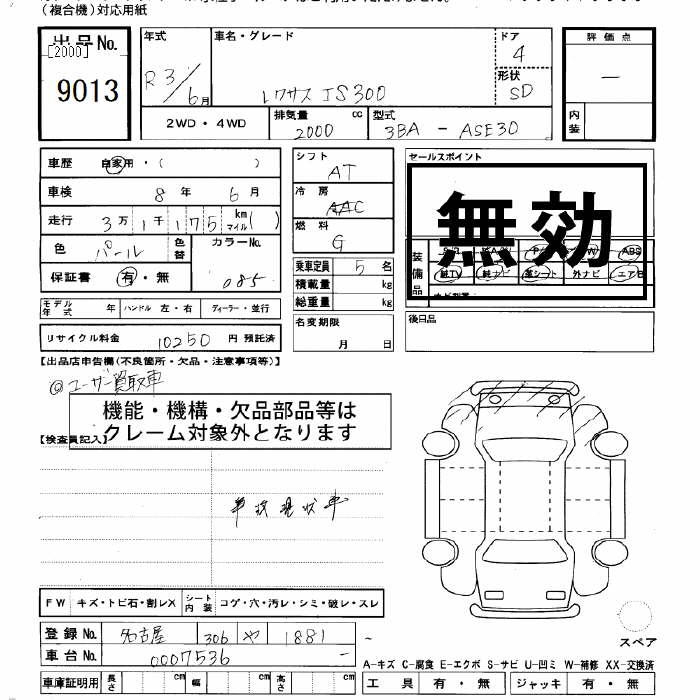 (複合機)対応用紙
出品No.
[2000]
9013
年式
R3/6月
車名・グレード
レクサス IS300
ドア
4
形状
SD
評価点
—
内装
2WD・4WD
排気量 cc
2000
型式
3BA - ASE30
車歴 自家用・( )
車検 8年 6月
走行 3万1千175 km マイル ( )
色 パール 色替 カラーNo.
085
保証書 有・無
モデル年式 年 ハンドル 左・右 ディーラー・並行
リサイクル料金 10250 円 預託済
シフト AT
冷房 AAC
燃料 G
乗車定員 5 名
積載量 kg
総重量 kg
名変期限
月 日
セールスポイント
無効
装備品
ABS
純TV 純ナビ 革シート 外ナビ エアB
後日品
【出品店申告欄(不良箇所・欠品・注意事項等)】
@ユーザー買取車
機能・機構・欠品部品等は
クレーム対象外となります
【検査員記入】
車状現状車
FW キズ・トビ石・割レX シート内装 コゲ・穴・汚レ・シミ・破レ・スレ
登録No. 名古屋 306 や 1881
車台No. 0007536
車庫証明用 長さ cm 幅 cm 高さ cm
スペア
A-キズ C-腐食 E-エクボ S-サビ U-凹ミ W-補修 XX-交換済
工具 有・無 ジャッキ 有・無